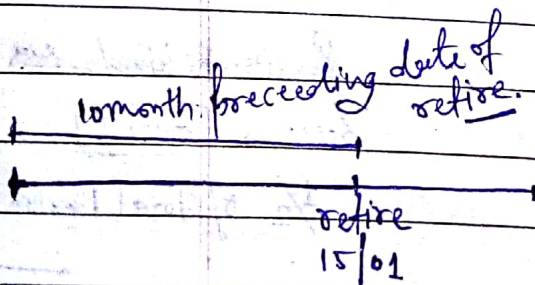 10month preceeding date of
retire.
retire
15/01